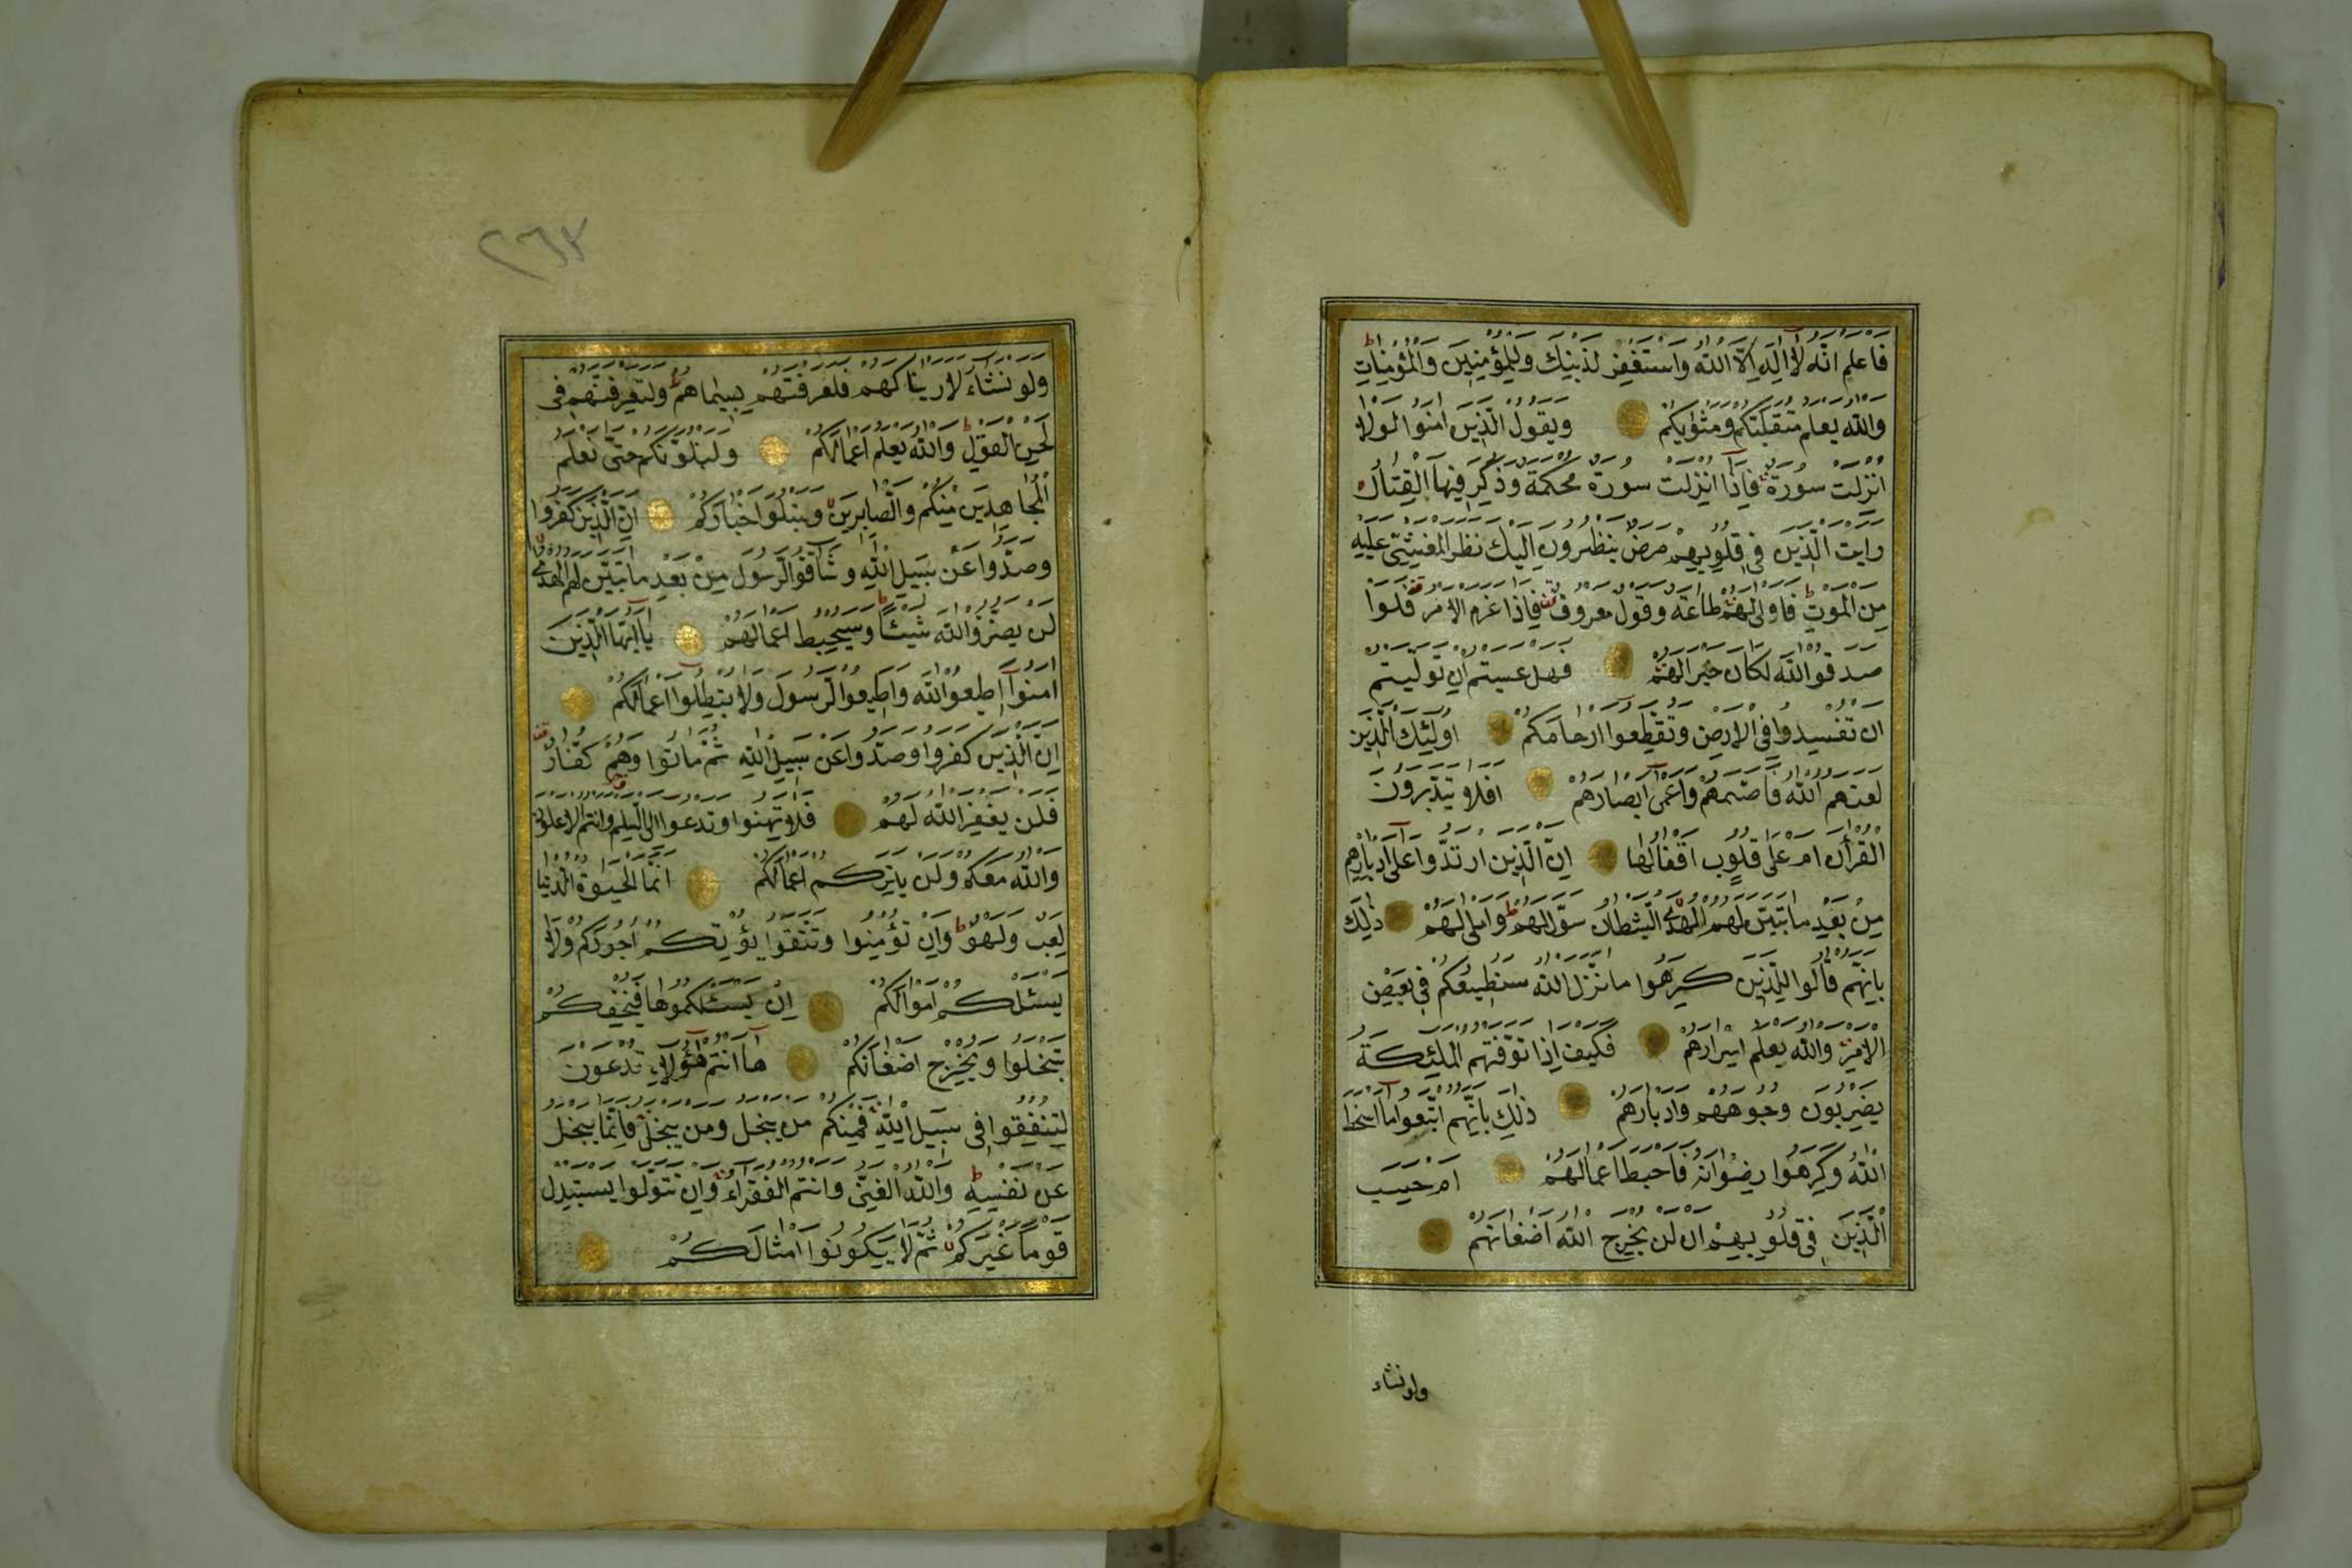 فاعلم انّه لا اله الّا الله واستغفر لذنبك وللمؤمنين والمؤمنات
والله يعلم متقلبكم ومثويكم ويقول الّذين امنوا لولا
انزلت سورة فاذا انزلت سورة محكمة وذكر فيها القتال
رايت الّذين فى قلوبهم مرض ينظرون اليك نظر المغشىّ عليه
من الموت فاولى لهم طاعة وقول معروف فاذا عزم الامر فلوا
صدقوا الله لكان خيرا لهم فهل عسيتم ان تولّيتم
ان تفسدوا فى الارض وتقطّعوا ارحامكم اولئك الّذين
لعنهم الله فاصمّهم واعمى ابصارهم افلا يتدبّرون
القرأن ام على قلوب اقفالها انّ الّذين ارتدّوا على ادبارهم
من بعد ما تبيّن لهم الهدى الشّيطان سوّل لهم واملى لهم ذلك
بانّهم قالوا للّذين كرهوا ما نزّل الله سنطيعكم فى بعض
الامر والله يعلم اسرارهم فكيف اذا توفّتهم الملئكة
يضربون وجوههم وادبارهم ذلك بانّهم اتّبعوا ما اسخط
الله وكرهوا رضوانه فاحبط اعمالهم ام حسب
الّذين فى قلوبهم ان لن يخرج الله اضغانهم
ولو نشاء
٢٦٣
ولو نشاء لاريناكهم فلعرفتهم بسيماهم ولتعرفنهم فى
لحن القول والله يعلم اعمالكم ولنبلونّكم حتّى نعلم
المجاهدين منكم والصّابرين ونبلوا اخباركم انّ الّذين كفروا
وصدّوا عن سبيل الله وشاقّوا الرّسول من بعد ما تبيّن لهم الهدى
لن يضرّوا الله شيئا وسيحبط اعمالهم يا ايّها الّذين
امنوا اطيعوا الله واطيعوا الرّسول ولا تبطلوا اعمالكم
انّ الّذين كفروا وصدّوا عن سبيل الله ثمّ ماتوا وهم كفّار
فلن يغفر الله لهم فلا تهنوا وتدعوا الى السّلم وانتم الاعلون
والله معكم ولن يتركم اعمالكم انّما الحيوة الدّنيا
لعب ولهو وان تؤمنوا وتتّقوا يؤتكم اجوركم ولا
يسئلكم اموالكم ان يسئلكموها فيحفكم
تبخلوا ويخرج اضغانكم ها انتم هؤلاء تدعون
لتنفقوا فى سبيل الله فمنكم من يبخل ومن يبخل فانّما يبخل
عن نفسه والله الغنىّ وانتم الفقراء وان تتولّوا يستبدل
قوما غيركم ثمّ لا يكونوا امثالكم